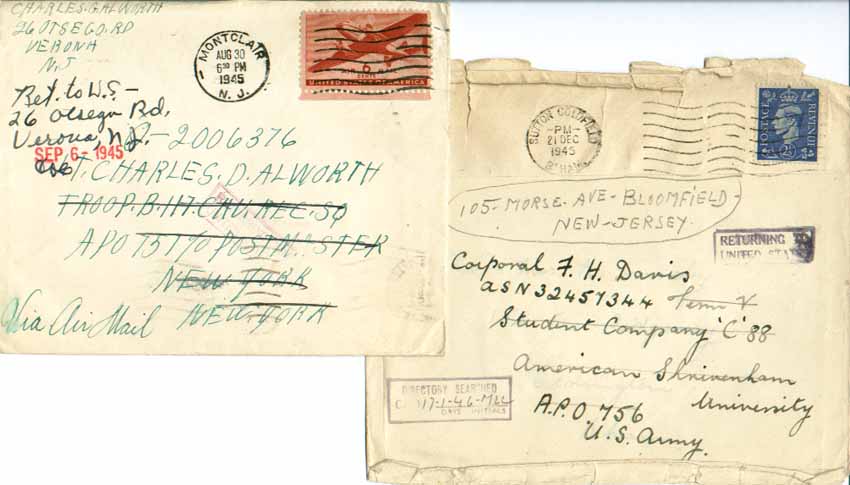 CHARLES. G. ALWORTH
26 OTSEGO. RD
VERONA
N. J
MONTCLAIR
AUG 30
6 30 PM
1945
N. J.
6¢
UNITED STATES OF AMERICA
Ret. to W.S-
26 Otsego Rd,
Verona, N.J.
SEP 6-1945
O-2006376
T. CHARLES. D. ALWORTH
TROOP. B. 117. CAV. REC. SQ
APO 757 % POSTMASTER
NEW YORK
NEW. YORK
Via Air Mail
SUTTON COLDFIELD
-PM-
21 DEC
1945
B'HAM
POSTAGE
REVENUE
2½
105- MORSE. AVE- BLOOMFIELD-
NEW-JERSEY.
RETURNING TO
UNITED STATES
Corporal F. H. Davis
ASN 32457344
Student Company 'C' 88
American Shrivenham
University
DIRECTORY SEARCHED
17-1-46-MLL
DAYS INITIALS
A.P.O. 756
U.S. Army.